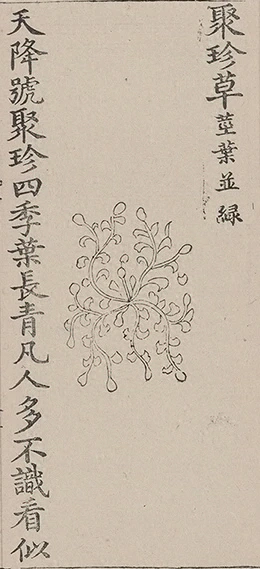 聚珍草莖葉並緑
天降號聚珍四季葉長青凡人多不識看似